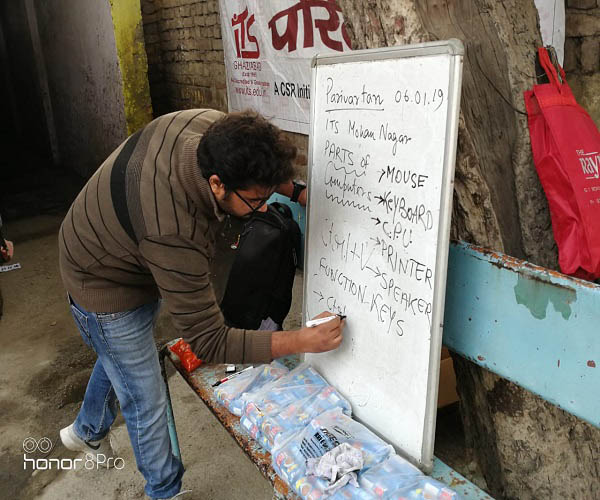 iTS परि
GHAZIABAD
A CSR Initi
its.edu.in
Parivartan 06.01.19
ITS Mohan Nagar
PARTS OF
Computers → MOUSE
→ KEYBOARD
→ C.P.U.
→ PRINTER
→ SPEAKER
FUNCTION-KEYS
THE
Ray
honor 8 Pro